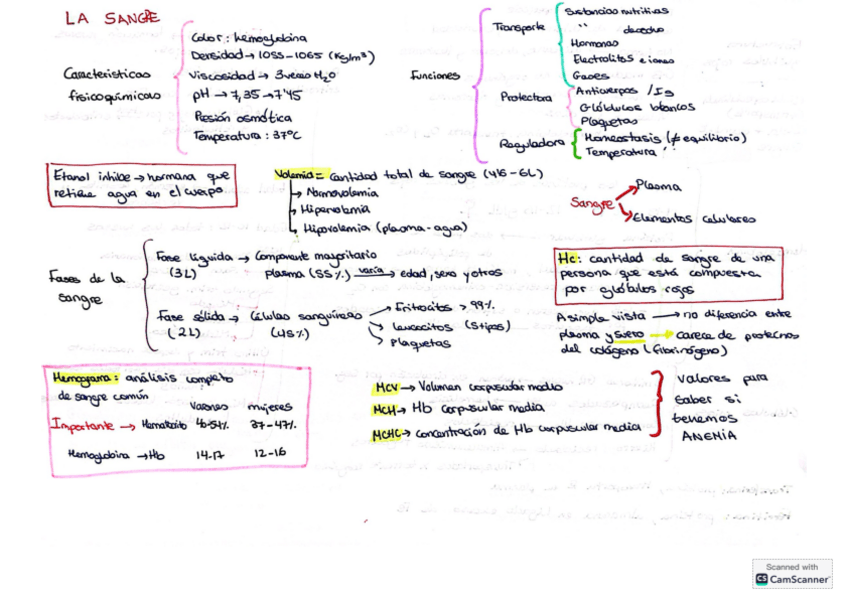 LA SANGRE
Características fisicoquímicas
Color: hemoglobina
Densidad → 1055-1065 (Kg/m³)
Viscosidad → 3 veces H₂O
pH → 7,35 → 7'45
Presión osmótica
Temperatura: 37°C
Funciones
Transporte
Sustancias nutritivas
" desecho
Hormonas
Electrolitos e iones
Gases
Protectora
Anticuerpos / Is
Glóbulos blancos
Plaquetas
Reguladora
Homeostasis (≠ equilibrio)
Temperatura
Etanol inhibe → hormona que
retiene agua en el cuerpo
Volemia = cantidad total de sangre (4'5-6L)
→ Normovolemia
→ Hipervolemia
→ Hipovolemia (plasma-agua)
Sangre
→ Plasma
→ Elementos celulares
Fases de la
sangre
Fase líquida → Componente mayoritario
(3L) plasma (55%) varía → edad, sexo y otros
Fase sólida → Células sanguíneas
(2L) (45%)
→ Eritrocitos > 99%
→ Leucocitos (5 tipos)
→ Plaquetas
Hc: cantidad de sangre de una
persona que está compuesta
por glóbulos rojos
A simple vista → no diferencia entre
plasma y suero → carece de proteínas
del colágeno (fibrinógeno)
Hemograma: análisis completo
de sangre común
Varones mujeres
Importante → Hematocito 40-54% 37-47%
Hemoglobina → Hb 14-17 12-16
MCV → Volumen corpuscular medio
MCH → Hb corpuscular media
MCHC → concentración de Hb corpuscular media
Valores para
saber si
tenemos
ANEMIA
Scanned with
CS CamScanner